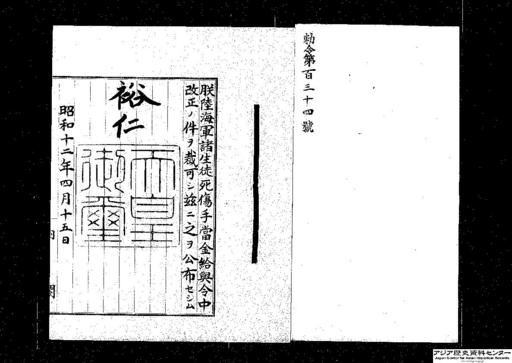 勅令第百三十四號
朕陸海軍諸生徒死傷手當金給與令中
改正ノ件ヲ裁可シ玆ニ之ヲ公布セシム
裕仁
天皇御璽
昭和十二年四月十五日
内閣
アジア歴史資料センター
Japan Center for Asian Historical Records